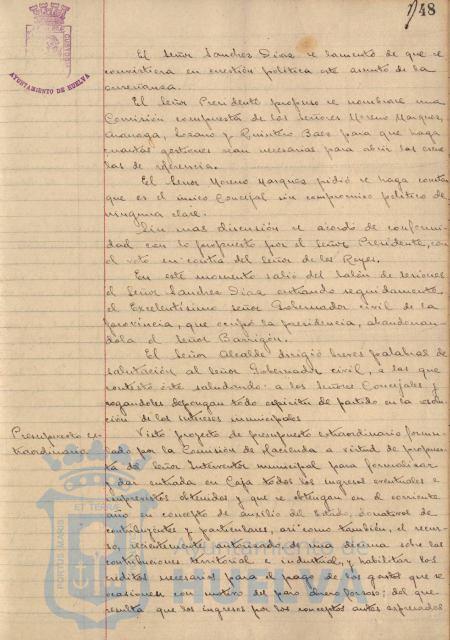 1/48
AYUNTAMIENTO DE HUELVA
El Señor Sanchez Diaz se lamentó de que se
convirtiera en cuestión politica este asunto de la
enseñanza.
El Señor Presidente propuso se nombrase una
Comisión compuesta de los Señores Moreno Marquez,
Lozano y Quintero Baez para que haga
cuantas gestiones sean necesarias para abrir las escue
las de referencia.
El Señor Moreno Marquez pidió se haga constar
que es el único Concejal sin compromiso politico de
ninguna clase.
Sin mas discusión se acordó de conformi
dad con lo propuesto por el Señor Presidente, con
el voto en contra del Señor de los Reyes.
En este momento salió del Salón de sesiones
el Señor Sanchez Diaz entrando seguidamente
el Excelentisimo señor Gobernador civil de la
provincia, que ocupó la presidencia, abandonan
dola el Señor Barrigón.
El Señor Alcalde dirigió breves palabras de
salutación al señor Gobernador civil, a las que
contestó éste saludando a los Señores Concejales y
rogandoles depongan todo espiritu de partido en la
de los intereses municipales
Presupuesto ex-
traordinario
Visto proyecto de presupuesto extraordinario formu
lado por la Comisión de Hacienda a virtud de propues
ta del Señor Interventor municipal para formalizar
y dar entrada en Caja todos los ingresos eventuales e
imprevistos obtenidos y que se obtengan en el corriente
año en concepto de auxilio del Estado, donativos de
contribuyentes y particulares, asi como también, el recur
so, recientemente autorizado, de una decima sobre las
contribuciones territorial e industrial, y habilitar los
creditos necesarios para el pago de los gastos que se
ocasionen con motivo del paro obrero forzoso; del que
resulta que los ingresos por los conceptos antes expresados
ET TERRAE
PORTUS MARIS
Ayuntamiento de
HUELVA